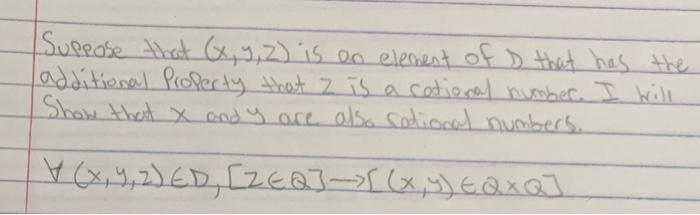 Suppose that (x,y,z) is an element of D that has the
additional Property that z is a rational number. I will
Show that x and y are also rational numbers.
∀ (x,y,z) ∈ D, [z ∈ Q] → [(x,y) ∈ Q×Q]